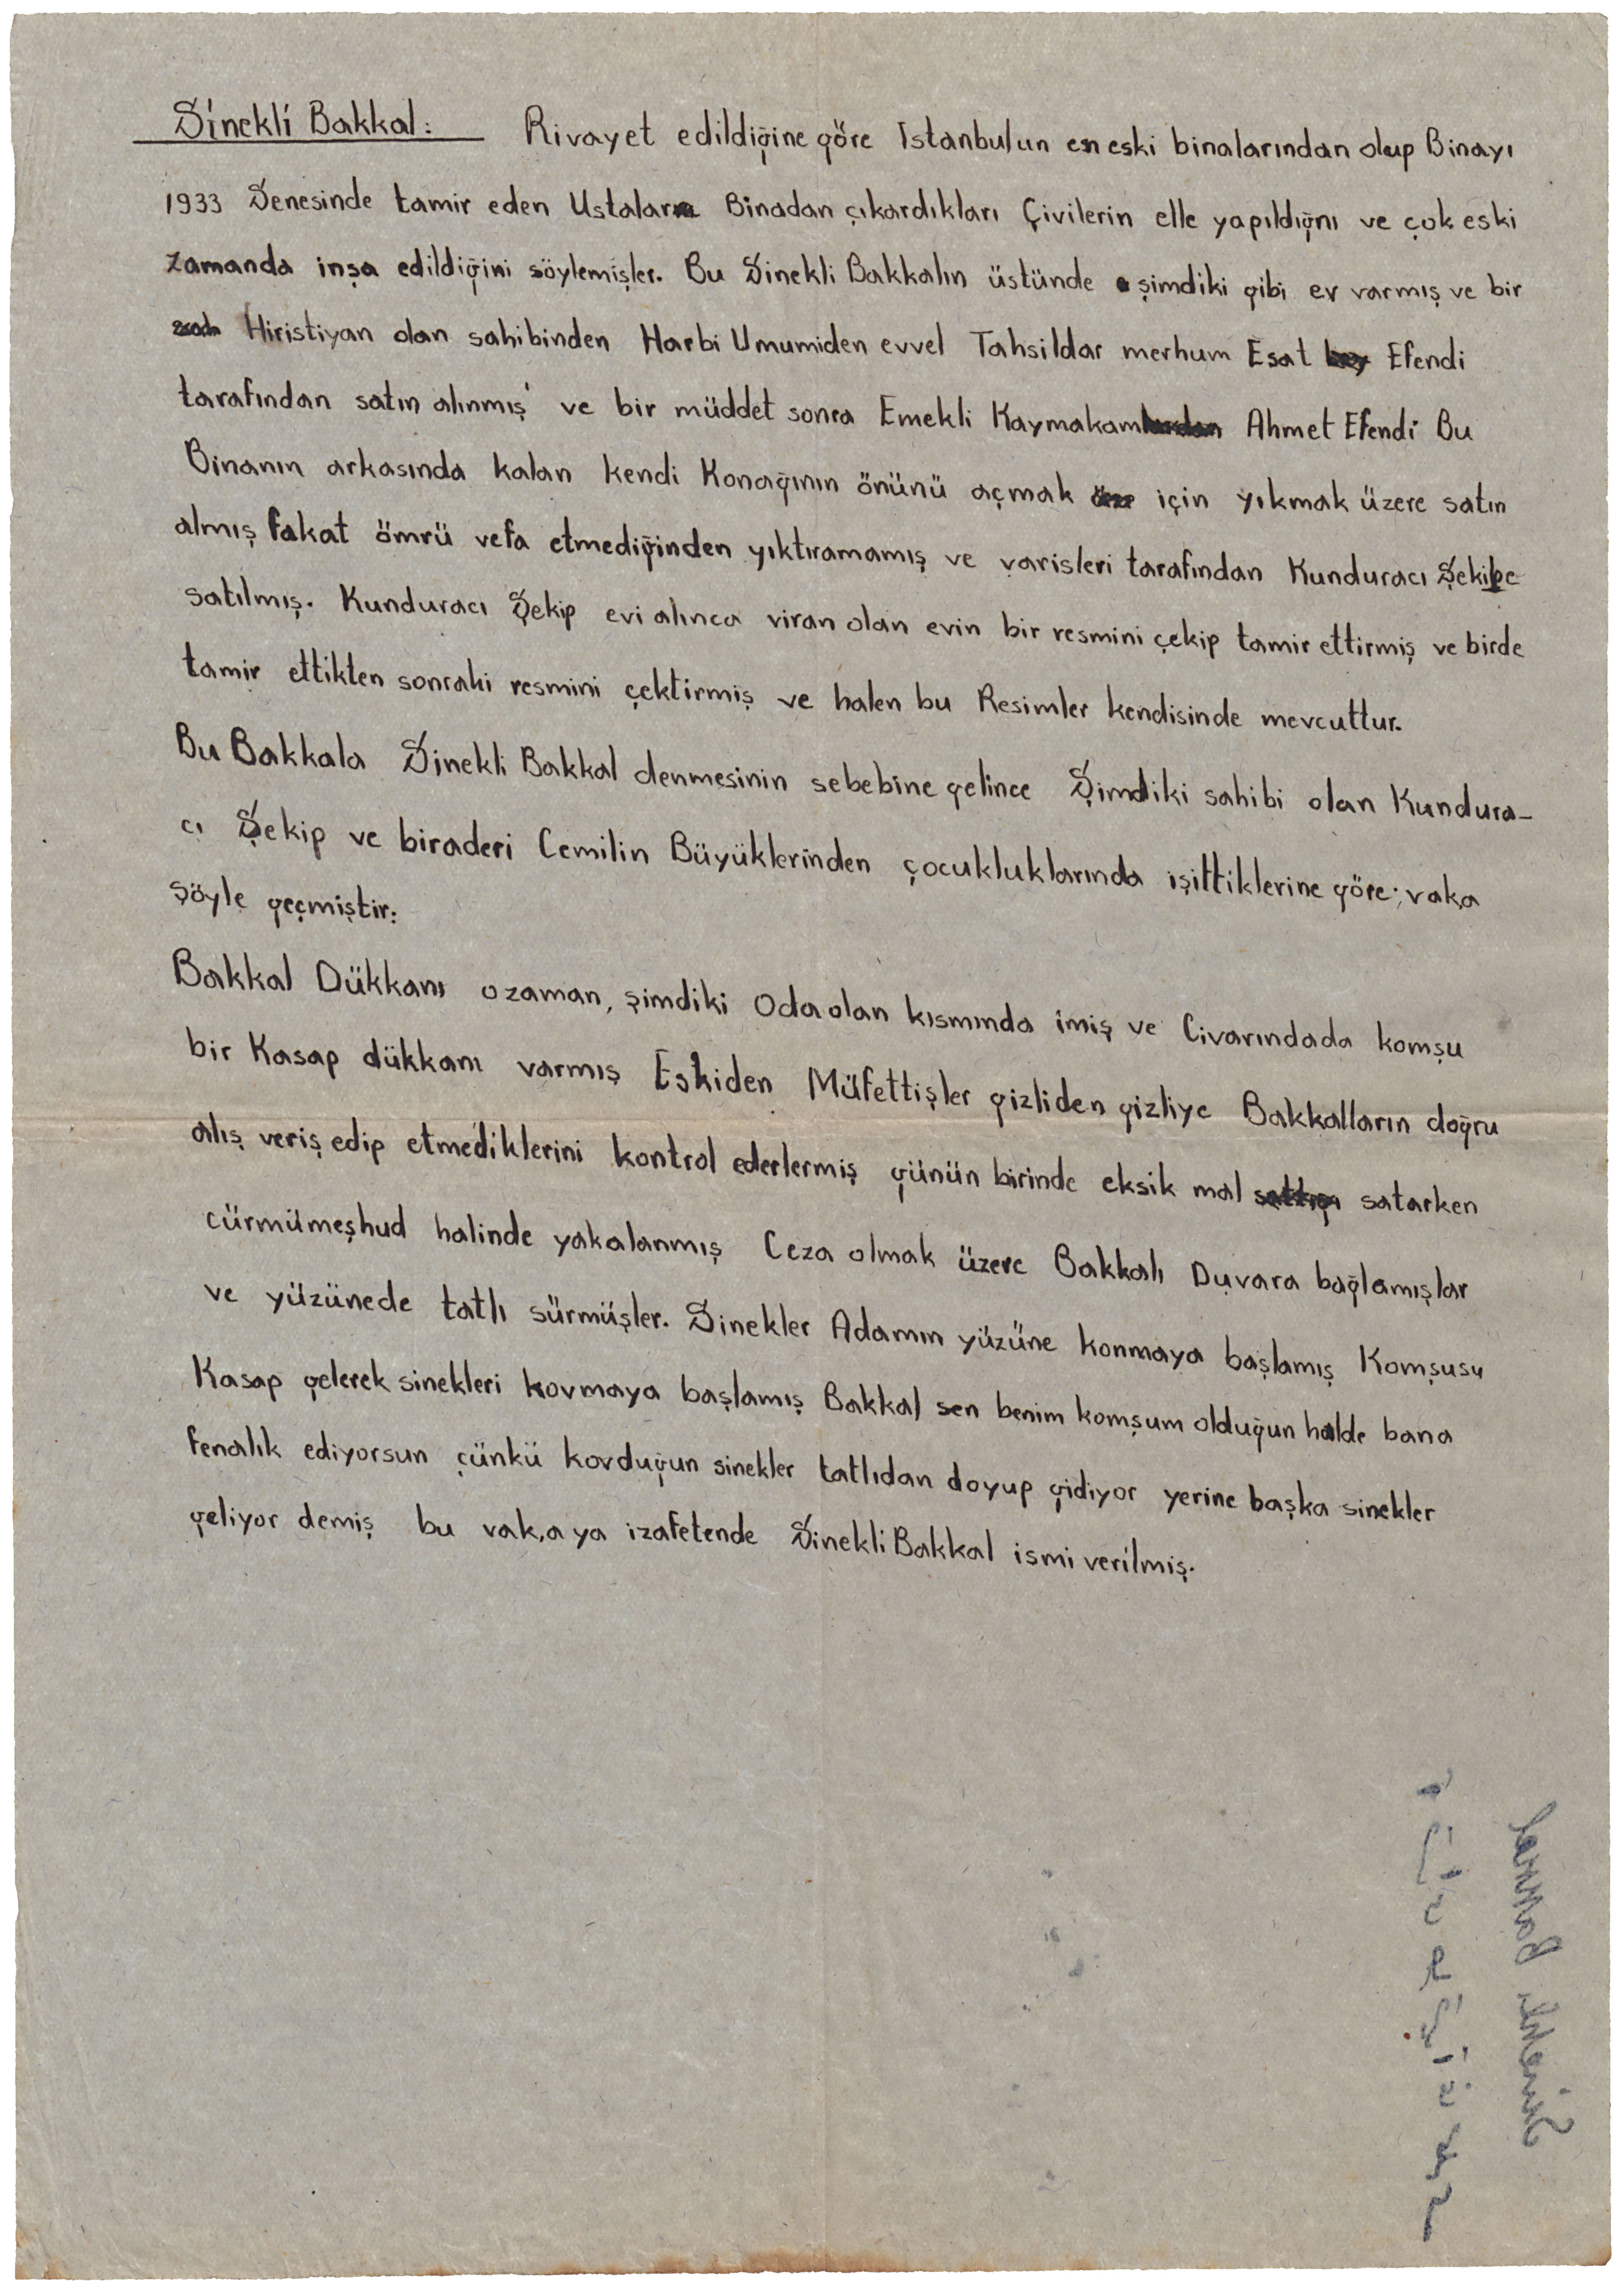 Sinekli Bakkal: Rivayet edildiğine göre Istanbulun en eski binalarından olup Binayı
1933 Senesinde tamir eden Ustalar Binadan çıkardıkları Çivilerin elle yapıldığnı ve çok eski
zamanda inşa edildiğini söylemişler. Bu Sinekli Bakkalın üstünde şimdiki gibi ev varmış ve bir
Hiristiyan olan sahibinden Harbi Umumiden evvel Tahsildar merhum Esat bey Efendi
tarafından satın alınmış ve bir müddet sonra Emekli Kaymakamlardan Ahmet Efendi Bu
Binanın arkasında kalan kendi Konağının önünü açmak için yıkmak üzere satın
almış fakat ömrü vefa etmediğinden yıktıramamış ve varisleri tarafından Kunduracı Şekipe
satılmış. Kunduracı Şekip evi alınca viran olan evin bir resmini çekip tamir ettirmiş ve birde
tamir ettikten sonraki resmini çektirmiş ve halen bu Resimler kendisinde mevcuttur.
Bu Bakkala Sinekli Bakkal denmesinin sebebine gelince Şimdiki sahibi olan Kundura-
cı Şekip ve biraderi Cemilin Büyüklerinden çocukluklarında işittiklerine göre; vaka
şöyle geçmiştir:
Bakkal Dükkanı ozaman, şimdiki Oda olan kısmında imiş ve Civarındada komşu
bir Kasap dükkanı varmış Eskiden Müfettişler gizliden gizliye Bakkalların doğru
alış veriş edip etmediklerini kontrol ederlermiş günün birinde eksik mal sattığı satarken
cürmümeşhud halinde yakalanmış Ceza olmak üzere Bakkalı Duvara bağlamışlar
ve yüzünede tatlı sürmüşler. Sinekler Adamın yüzüne konmaya başlamış Komşusu
Kasap gelerek sinekleri kovmaya başlamış Bakkal sen benim komşum olduğun halde bana
fenalık ediyorsun çünkü kovduğun sinekler tatlıdan doyup gidiyor yerine başka sinekler
geliyor demiş bu vak,a ya izafetende Sinekli Bakkal ismi verilmiş.
Sinekli Bakkal